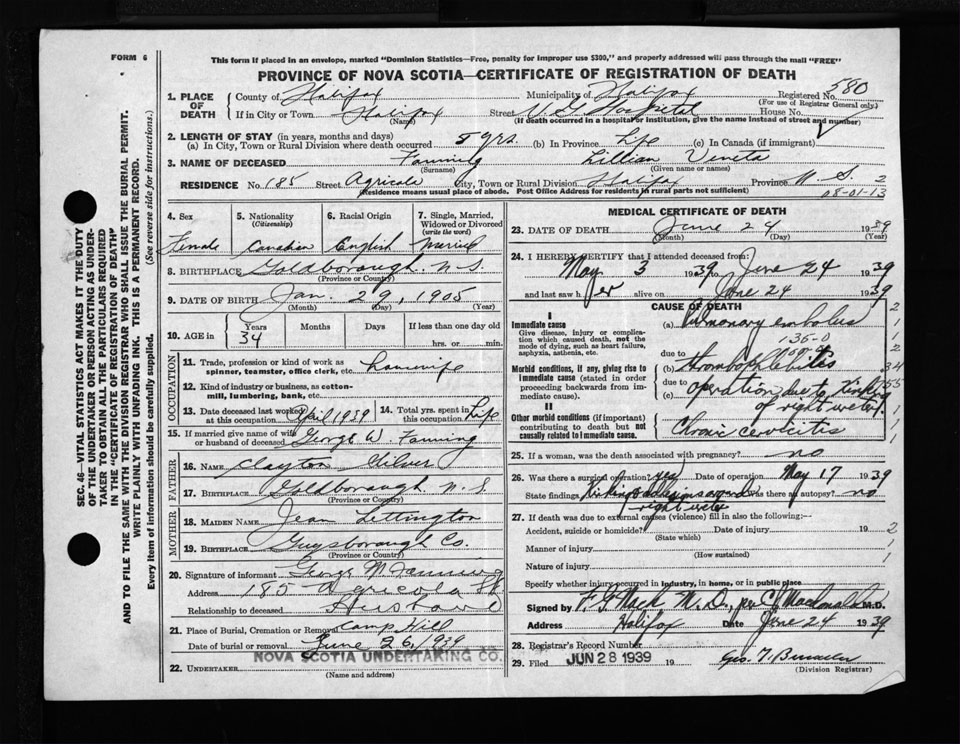 FORM 6
This form if placed in an envelope, marked "Dominion Statistics—Free, penalty for improper use $300," and properly addressed will pass through the mail "FREE"
PROVINCE OF NOVA SCOTIA—CERTIFICATE OF REGISTRATION OF DEATH
580
1. PLACE OF DEATH
County of Halifax Municipality of Halifax Registered No.
(For use of Registrar General only.)
If in City or Town Halifax Street V G Hospital House No.
(Name) (If death occurred in a hospital or institution, give the name instead of street and number)
2. LENGTH OF STAY (in years, months and days)
(a) In City, Town or Rural Division where death occurred 5 yrs. (b) In Province Life (c) In Canada (if immigrant)
3. NAME OF DECEASED Fanning Lillian Veneta
(Surname) (Given name or names)
RESIDENCE No. 185 Street Agricola City, Town or Rural Division Halifax Province N.S. 2
(Residence means usual place of abode. Post Office Address for residents in rural parts not sufficient) 08-01-13
4. Sex 5. Nationality (Citizenship) 6. Racial Origin 7. Single, Married, Widowed or Divorced (write the word)
Female Canadian English Married
8. BIRTHPLACE Goldborough. N.S.
(Province or Country)
9. DATE OF BIRTH Jan. 29, 1905
(Month) (Day) (Year)
10. AGE in Years Months Days If less than one day old
34 hrs. or min.
OCCUPATION
11. Trade, profession or kind of work as spinner, teamster, office clerk, etc. housewife
12. Kind of industry or business, as cotton-mill, lumbering, bank, etc.
13. Date deceased last worked at this occupation April 1939 14. Total yrs. spent in this occupation Life
15. If married give name of wife or husband of deceased George W. Fanning
FATHER
16. NAME Clayton Silver
17. BIRTHPLACE Goldborough N.S
(Province or Country)
MOTHER
18. MAIDEN NAME Jean Lettington
19. BIRTHPLACE Guysborough Co.
(Province or Country)
20. Signature of informant George M Fanning
Address 185 Agricola St
Relationship to deceased Husband
21. Place of Burial, Cremation or Removal Camp Hill
Date of burial or removal June 26, 1939
NOVA SCOTIA UNDERTAKING CO.
22. UNDERTAKER
(Name and address)
MEDICAL CERTIFICATE OF DEATH
23. DATE OF DEATH June 24 1939
(Month) (Day) (Year)
24. I HEREBY CERTIFY that I attended deceased from:
May 3 1939 to June 24 1939
and last saw her alive on June 24 1939
CAUSE OF DEATH
I
Immediate cause (a) Pulmonary embolus
Give disease, injury or complication which caused death, not the mode of dying, such as heart failure, asphyxia, asthenia, etc.
136-0
due to
Morbid conditions, if any, giving rise to immediate cause (stated in order proceeding backwards from immediate cause).
(b) thrombophlebitis
due to
(c) operation due to kinking of right ureter.
II
Other morbid conditions (if important) contributing to death but not causally related to immediate cause.
Chronic cervicitis
25. If a woman, was the death associated with pregnancy? no
26. Was there a surgical operation? yes Date of operation May 17 1939
State findings Kinking & adhesions around right ureter Was there an autopsy? no
27. If death was due to external causes (violence) fill in also the following:—
Accident, suicide or homicide? Date of injury 19
(State which)
Manner of injury
(How sustained)
Nature of injury
Specify whether injury occurred in industry, in home, or in public place
Signed by F.G. Mack, M.D., per C J Macdonald M.D.
Address Halifax Date June 24 1939
28. Registrar's Record Number
29. Filed JUN 28 1939 19
(Division Registrar)
SEC. 46—VITAL STATISTICS ACT MAKES IT THE DUTY
OF THE UNDERTAKER OR PERSON ACTING AS UNDER-
TAKER TO OBTAIN ALL THE PARTICULARS REQUIRED
IN THE "CERTIFICATE OF REGISTRATION OF DEATH"
AND TO FILE THE SAME WITH THE DIVISION REGISTRAR WHO SHALL ISSUE THE BURIAL PERMIT.
WRITE PLAINLY WITH UNFADING INK. THIS IS A PERMANENT RECORD.
Every item of information should be carefully supplied. (See reverse side for instructions.)